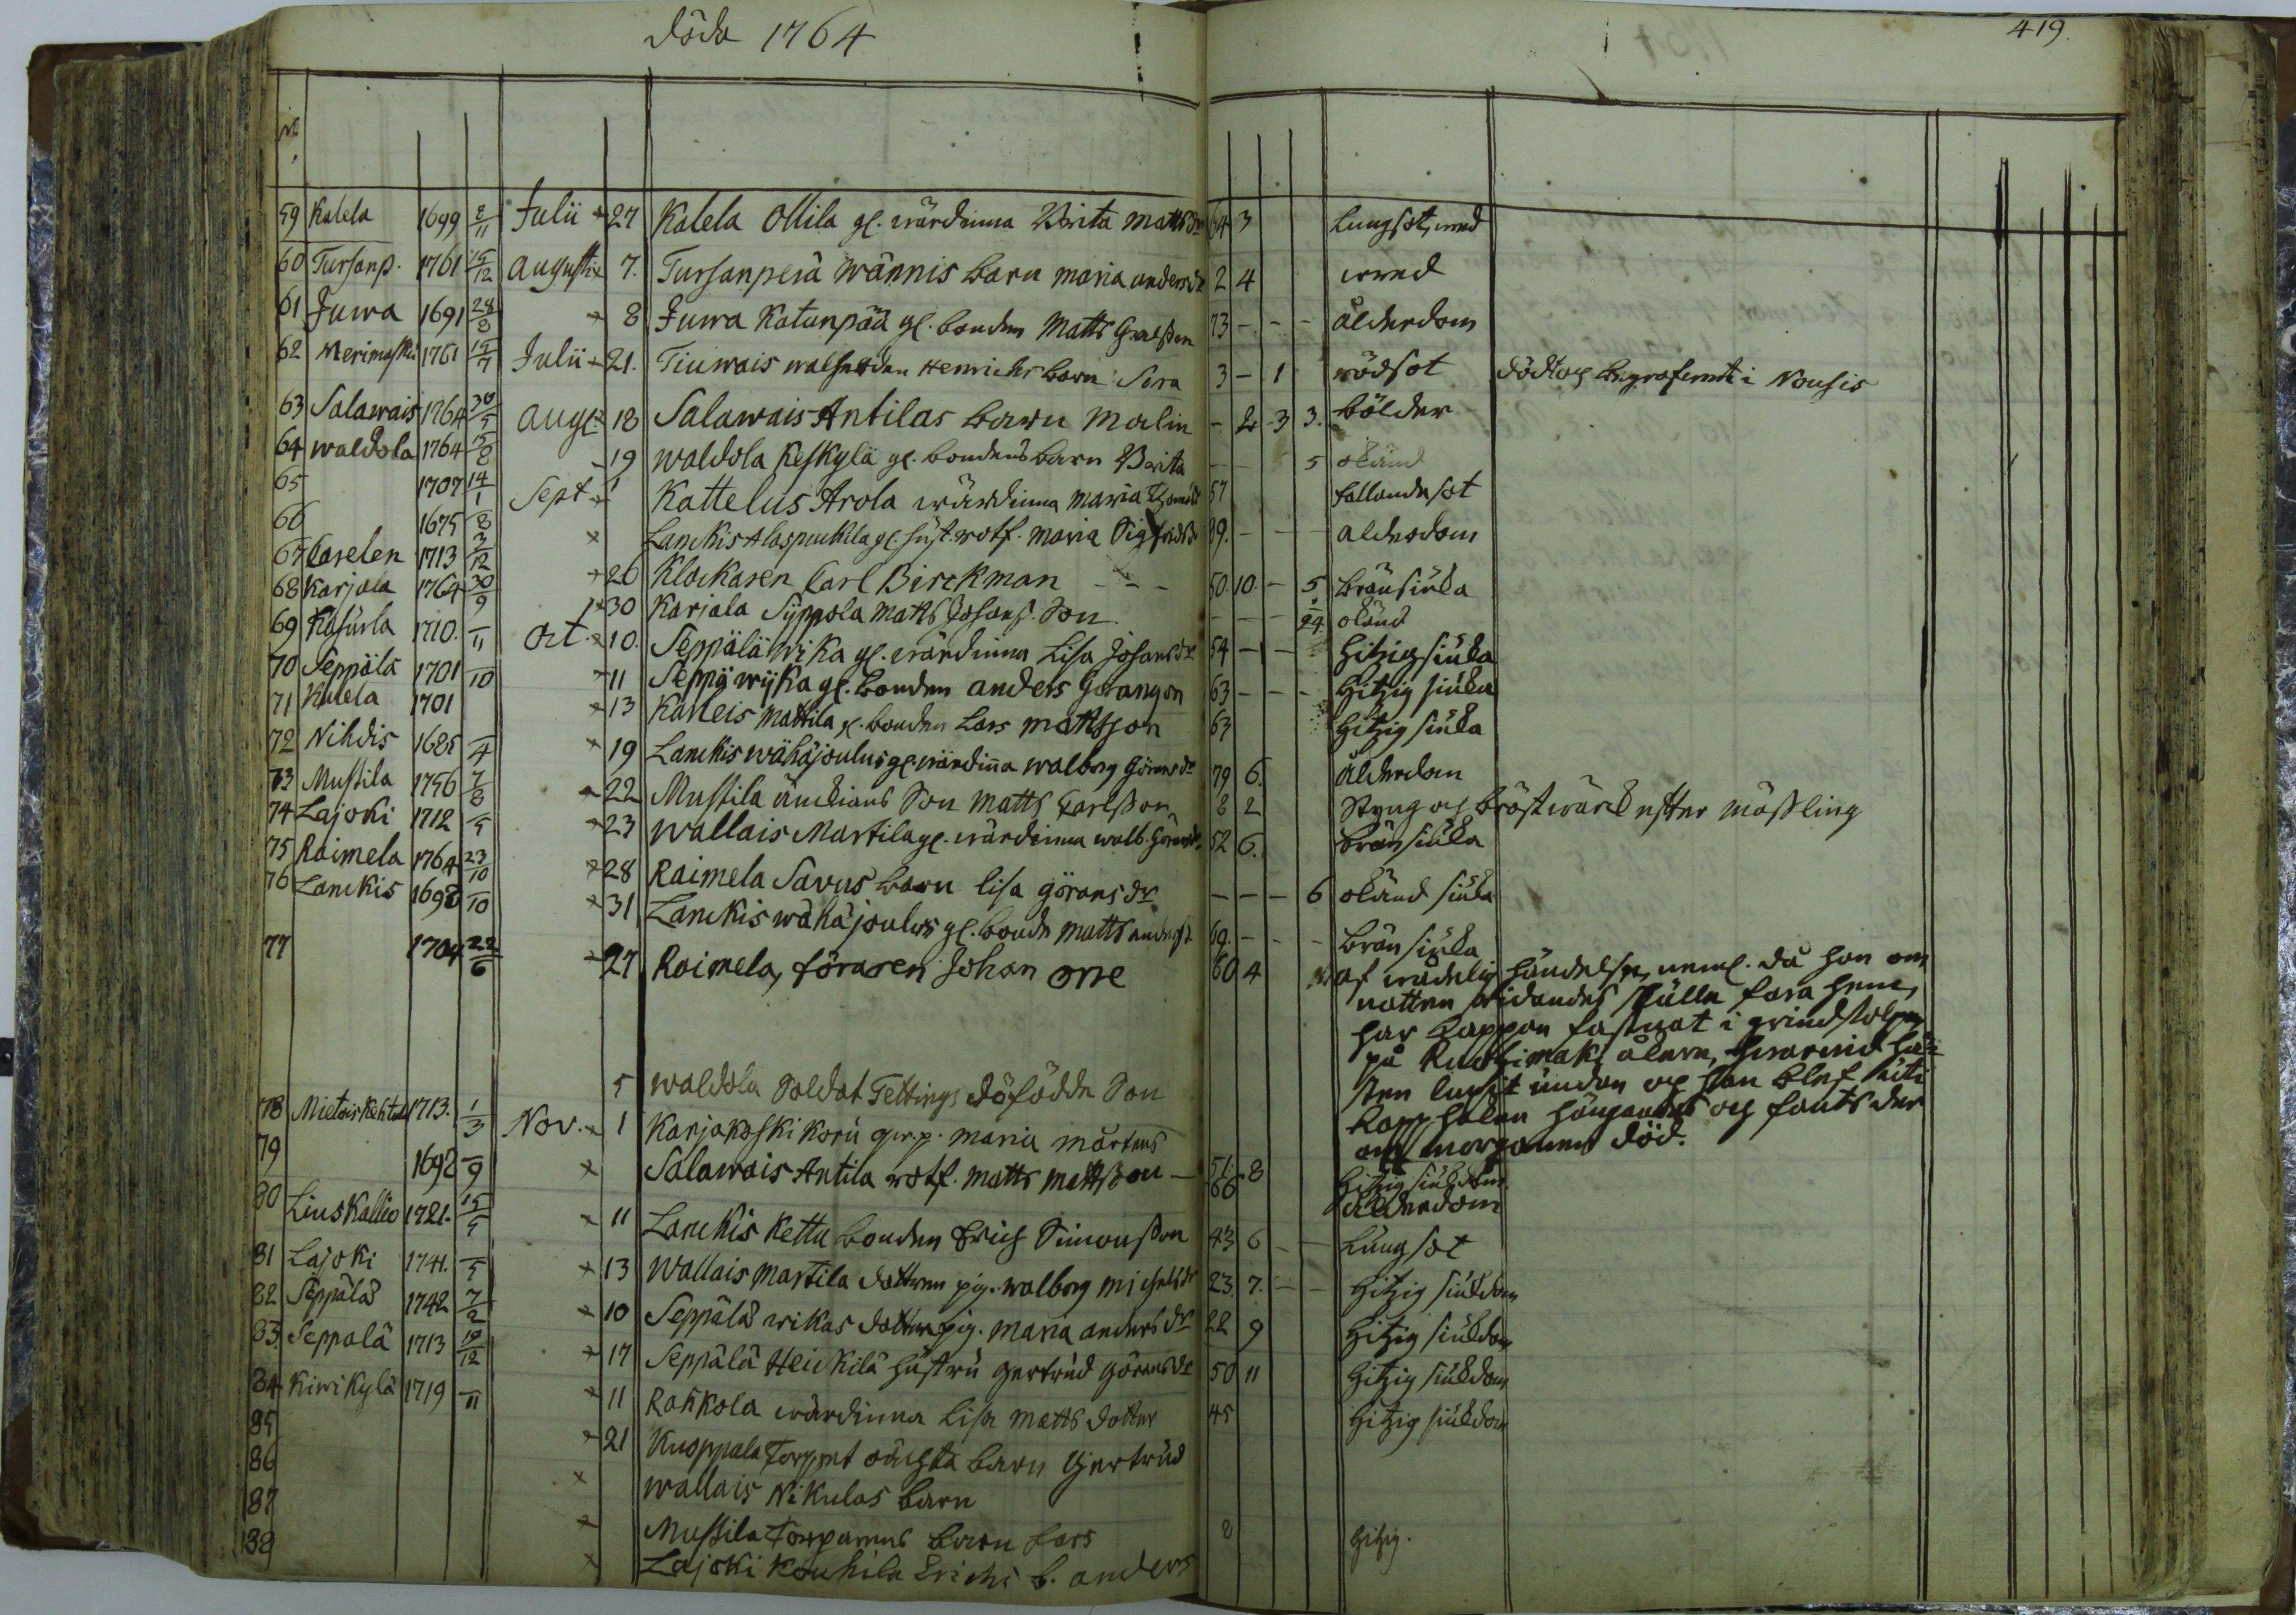 döda 1764
419.
N:
59 Kalela 1699 8/11 Julii + 27 Kalela Ollila gl. wärdinna Brita Mattsdr 64 3 Lungsot, wred
60 Tursanp. 1761 15/12 Augusti x 7. Tursanperä Wännis barn Maria andersdr 2 4 wred
61 Juwa 1691 28/8 x 8 Juwa Katanpää gl. bonden Matts 73 - - - ålderdom
62 Merimasku 1761 15/7 Julii x 21. Tiuwais Henrichs barn Sara 3 - 1 rödsot död och begrafwen i Nousis
63 Salawais 1764 30/5 aug: 18 Salawais Antilas barn Malin - 2 3 3. bölder
64 waldola 1764 15/8 - 19 waldola Keskylä gl. bondens barn Brita - - 5 okänd
65 1707 14/1 Sept x 1 Kattelus Arola wärdinna Maria Thomasdr 57 fallandesot
66 1675 /8 x Lanckis gl. hust. rotf. Maria Sigfridsdr 89. - - - ålderdom
67 Carelen 1713 3/12 x 26 Klockaren Carl Birckman - - - 50. 10. - 5. brän siuka
68 Karjala 1764 30/9 x 30 Karjala Syppola Matts Johans. Son - - - 1/24 okänd
69 Kahurla 1710. /11 Oct. x 10. Seppälä Wika gl. wärdinna Lisa Johansdr 54 - - - Hitzig siuka
70 Seppälä 1701 /10 - 11 Seppä wijka gl. bonden anders Göransson 63 - - - Hitzig siuka
71 Kalela 1701 x 13 Kaneis Mattila gl. bonden Lars Mattsson 63 Hitzig siuka
72 Nihdis 1685 /4 x 19 Lanckis wähäjoulus gl. wärdinna walborg Göransdr 79 6. ålderdom
73 Mustila 1756 7/8 x 22 Mustila änckians Son Matts Carlsson 8 2 Styng och bröstwärck efter mässling
74 Lajoki 1712 /5 x 23 Wallais Martila gl. wärdinna walb. Göransdr 52 6. brän siuka
75 Raimela 1764 23/10 x 28 Raimela Savus barn lisa göransdr - - - 6 okänd siuka
76 Lanckis 1698 /10 x 31 Lanckis wähäjoulus gl. bonden matts anderss. 69. - - - brän siuka
77 1704 22/6 x 27 Raimela, föraren Johan Orre 60 4 af wådelig händelse, neml. då han om
natten ridandes skulle fara hem,
har kappan fastnat i grindstolpen
på åkern, hwarwid häs-
ten lupit undan och han blef uti
kapp halan hängandes och fants der
om morgonen död.
5 waldola Soldat Tettings döfödde Son
78 Mietois Kehtul 1713. 1/3 Nov. x 1 Karjakoski Korü qwp. maria mårtens 51. 8 Hitzig siukdom
79 1698 /9 x Salawais Antila rotf. Matts Mattsson - 66 ålderdom
80 Linskallio 1721. 15/5 x 11 Lanckis Kettu bonden Erich Simonsson 43 6 - - Lungsot
81 Lajoki 1741. /5 x 13 Wallais Martila dottren pig. walborg Michelsdr 23. 7. - - Hitzig siukdom
82 Seppälä 1742 7/2 x 10 Seppälä wikas dotter pig. Maria andersdr 22 9 Hitzig siukdom
83. Seppälä 1713 19/12 x 17 Seppälä Heickilä hustru gertrud Göransdr 50 11 Hitzig siukdom
84 Kiwikylä 1719 /11 x 11 Rakkola wärdinna Lisa Matts dotter 45 Hitzig siukdom
85 x 21 Kuoppala Torpet oächta barn Gertrud
86 x Wallais Nikulas barn
87 x Mustila Torparens barn Lars 8 Hitzig.
88 x Lajoki Kouhila Erichs b. anders